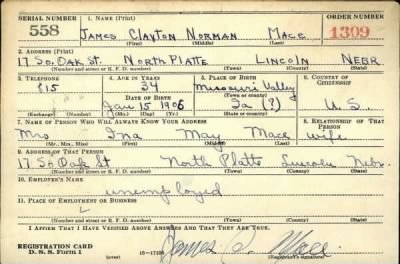 SERIAL NUMBER 1. NAME (Print) ORDER NUMBER
558 JAMES CLAYTON NORMAN MACE 1309
(First) (Middle) (Last)
2. ADDRESS (Print)
17 SO. OAK ST. NORTH PLATTE LINCOLN NEBR
(Number and street or R. F. D. number) (Town) (County) (State)
3. TELEPHONE 4. AGE IN YEARS 5. PLACE OF BIRTH 6. COUNTRY OF CITIZENSHIP
815 34 Missouri Valley
DATE OF BIRTH (Town or county)
Jan 15 1906 Ia (?) U. S.
(Exchange) (Number) (Mo.) (Day) (Yr.) (State or country)
7. NAME OF PERSON WHO WILL ALWAYS KNOW YOUR ADDRESS 8. RELATIONSHIP OF THAT PERSON
Mrs Ina May Mace wife
(Mr., Mrs., Miss) (First) (Middle) (Last)
9. ADDRESS OF THAT PERSON
17 So Oak St North Platte Lincoln Nebr.
(Number and street or R. F. D. number) (Town) (County) (State)
10. EMPLOYER'S NAME
unemployed
11. PLACE OF EMPLOYMENT OR BUSINESS
(Number and street or R. F. D. number) (Town) (County) (State)
I AFFIRM THAT I HAVE VERIFIED ABOVE ANSWERS AND THAT THEY ARE TRUE.
REGISTRATION CARD
D. S. S. Form 1 James Mace
(Registrant's signature)